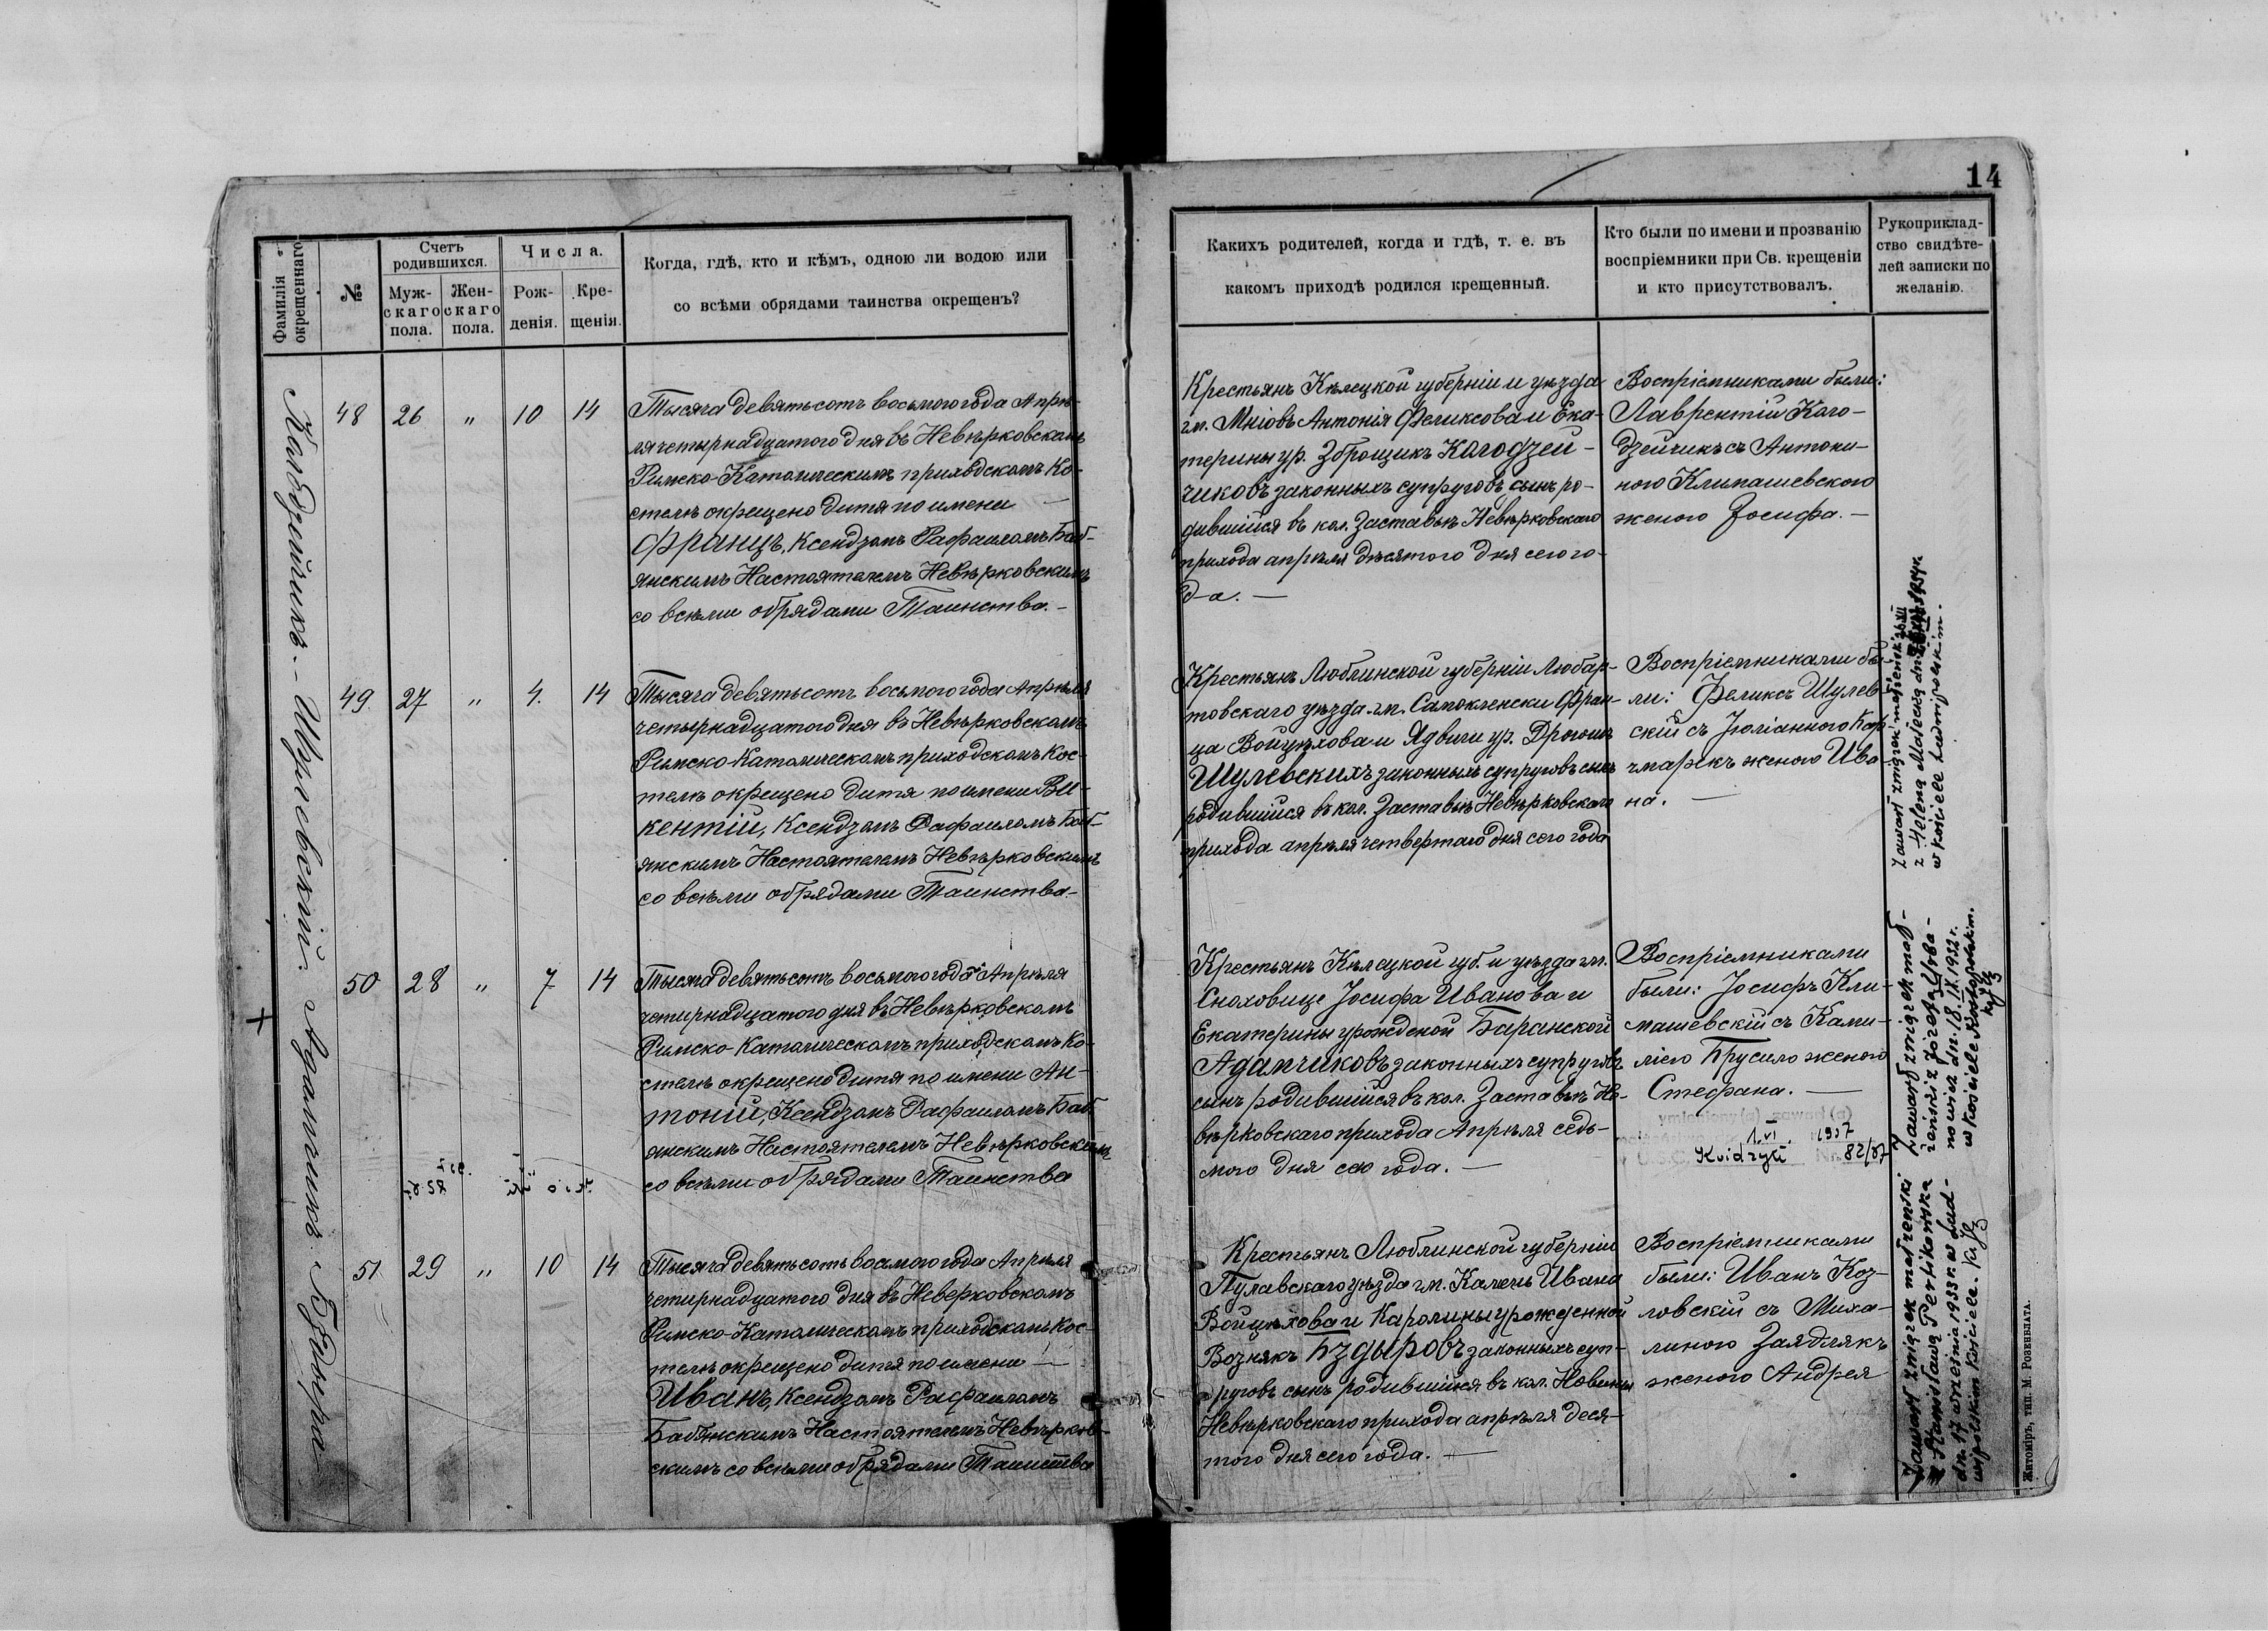 14
Фамилія
окрещеннаго
№
Счетъ
родившихся.
Муж-
скаго
пола.
Жен-
скаго
пола.
Числа.
Рож-
денія.
Кре-
щенія.
Когда, гдѣ, кто и кѣмъ, одною ли водою или
со всѣми обрядами таинства окрещенъ?
Какихъ родителей, когда и гдѣ, т. е. въ
какомъ приходѣ родился крещенный.
Кто были по имени и прозванію
воспріемники при Св. крещеніи
и кто присутствовалъ.
Рукоприклад-
ство свидѣте-
лей записки по
желанію.
48 26 " 10 14
Тысяча девятьсотъ восьмого года Апрѣ-
ля четырнадцатого дня въ Невѣрковскомъ
Римско-Католическимъ приходскомъ Ко-
стелѣ окрещено дитя по имени —
Францъ, Ксендзомъ Рафаиломъ Баб-
янскимъ Настоятелемъ Невѣрковскимъ
со всѣми обрядами Таинства.-
Крестьянъ Кѣлецкой губерніи и уѣзда
гм. Мніовъ Антонія Феликсова и Ека-
терины ур. Зброщикъ Кагодзей-
чиковъ законныхъ супруговъ сынъ ро-
дившійся въ кол. Заставьѣ Невѣрковскаго
прихода апрѣля десятого дня сего го-
да. —
Воспріемниками были:
Лаврентій Каго-
дзейчикъ съ Антони-
ною Климашевского
женою Іосифа. —
49. 27 " 4. 14
Тысяча девятьсотъ восьмого года Апрѣля
четырнадцатого дня въ Невѣрковскомъ
Римско-Католическомъ приходскомъ Кос-
телѣ окрещено дитя по имени Ви-
кентій, Ксендзомъ Рафаиломъ Баб-
янскимъ Настоятелемъ Невѣрковскимъ
со всѣми обрядами Таинства.-
Крестьянъ Люблинской губерніи Любар-
товскаго уѣзда гм. Самокленски Фран-
ца Войцѣхова и Ядвиги ур.
Шулевскихъ законныхъ супруговъ сынъ
родившійся въ кол. Заставьѣ Невѣрковскаго
прихода апрѣля четвертаго дня сего года
Воспріемниками бы-
ли: Феликсъ Шулев-
скій съ Юліанною Кар-
чмарекъ женою Ива
на. —
50 28 " 7 14
Тысяча девятьсотъ восьмого года Апрѣля
четырнадцатого дня въ Невѣрковскомъ
Римско-Католическомъ приходскомъ Ко-
стелѣ окрещено дитя по имени Ан-
тоній, Ксендзомъ Рафаиломъ Баб-
янскимъ Настоятелемъ Невѣрковскимъ
со всѣми обрядами Таинства
Крестьянъ Кѣлецкой губ. и уѣзда гм.
Сноховице Іосифа Иванова и
Екатерины урожденой Баранской
Адамчиковъ законныхъ супруговъ
сынъ родившійся въ кол. Заставьѣ Не-
вѣрковскаго прихода Апрѣля седь-
мого дня сего года. —
Воспріемниками
были: Іосифъ Кли-
машевскій съ Ками-
лією Брусило женою
Стефана. —
1. VI. 1957
Kwidzyń Nr. 82/57
51 29 " 10 14
Тысяча девятьсотъ восьмого года Апрѣля
четырнадцатого дня въ Неверковскомъ
Римско-Католическомъ приходскомъ Кос-
телѣ окрещено дитя по имени —
Иванъ, Ксендзомъ Рафаиломъ
Бабянскимъ Настоятелемъ Невѣрков-
скимъ со всѣми обрядами Таинства
Крестьянъ Люблинской губерніи
Пулавскаго уѣзда гм. Камень Ивана
Войцѣхова и Каролины урожденной
Вознякъ Бздыровъ законныхъ суп-
руговъ сынъ родившійся въ кол. Новины
Невѣрковскаго прихода апрѣля деся-
того дня сего года. —
Воспріемниками
были: Иванъ Коз-
ловскій съ Миха-
линою Заядлякъ
женою Андрея
Шулевскій
Адамчикъ
Zawarł związek małżeński
z Heleną Małecką dnia
w kościele Ludwipolskim.
Zawarł związek mał-
żeński z Józefą
dn. 18. IX. 1932 r.
w kościele
Zawarł związek małżeński
z Stanisławą
dn. 17 września 1933 r. w Lud-
wipolskim kościele.
Житоміръ, тип. М. Розенблата.